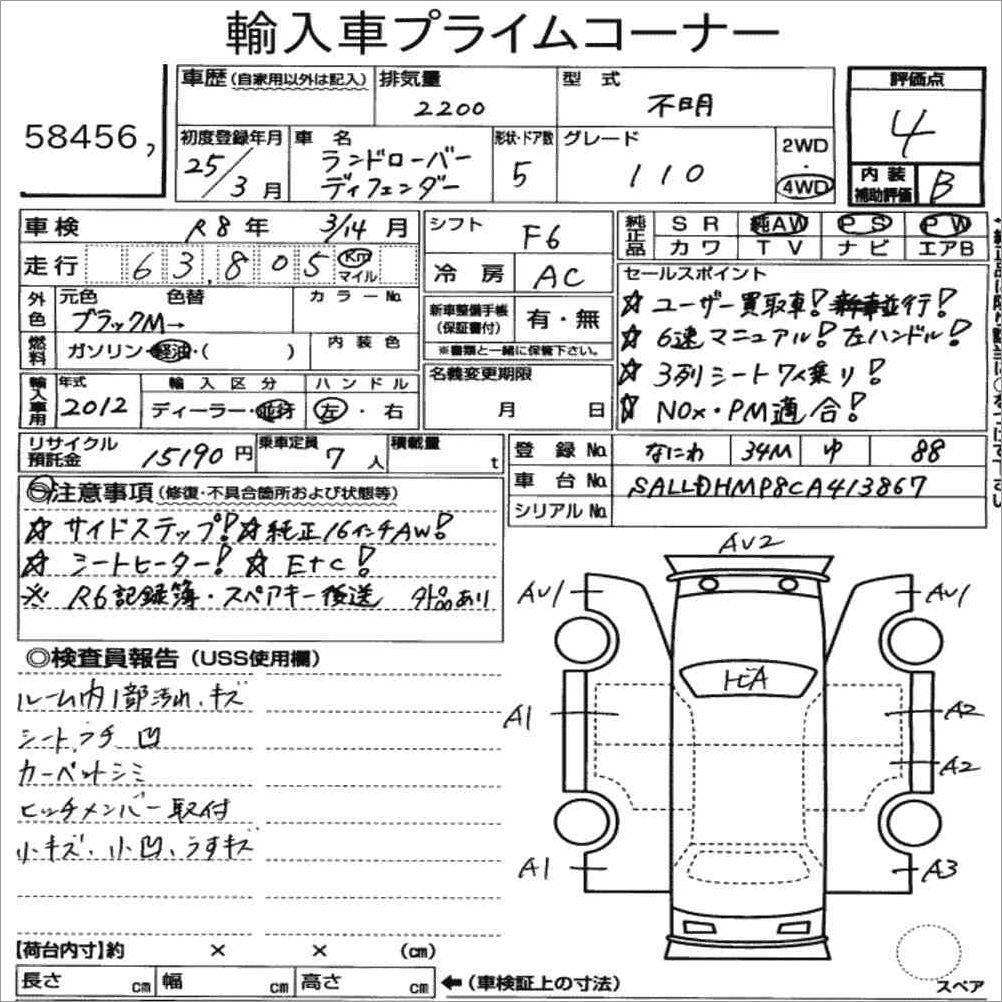 輸入車プライムコーナー
58456,
車歴(自家用以外は記入) 排気量 2200 型式 不明
初度登録年月 25/3月 車名 ランドローバー ディフェンダー 形状・ドア数 5 グレード 110 2WD・4WD
評価点 4
内装補助評価 B
車検 R8年 3/14月
走行 63,805 Km マイル
外色 元色 色替 カラーNo.
ブラックM→
燃料 ガソリン・軽油・( ) 内装色
輸入車用 年式 2012 輸入区分 ディーラー・並行 ハンドル 左・右
シフト F6
冷房 AC
新車整備手帳(保証書付) 有・無
※書類と一緒に保管下さい。
名義変更期限 月 日
純正品 SR 純AW PS PW
カワ TV ナビ エアB
セールスポイント
☆ ユーザー買取車! 並行!
☆ 6速マニュアル! 左ハンドル!
☆ 3列シート7人乗り!
☆ NOx・PM適合!
リサイクル預託金 15190円 乗車定員 7人 積載量 t
登録No. なにわ 34M ゆ 88
車台No. SALLDHMP8CA413867
シリアルNo.
注意事項(修復・不具合箇所および状態等)
☆ サイドステップ! ☆ 純正16インチAW!
☆ シートヒーター! ☆ ETC!
※ R6記録簿・スペアキー後送 外品あり
◎検査員報告(USS使用欄)
ルーム内1部汚れ、キズ
シートフチ凹
カーペットシミ
ヒッチメンバー取付
小キズ、小凹、うすキズ
AU2
AU1 AU1
トビA
A1 A2
A2
A1 A3
スペア
【荷台内寸】約 × × (cm)
長さ cm 幅 cm 高さ cm ←(車検証上の寸法)